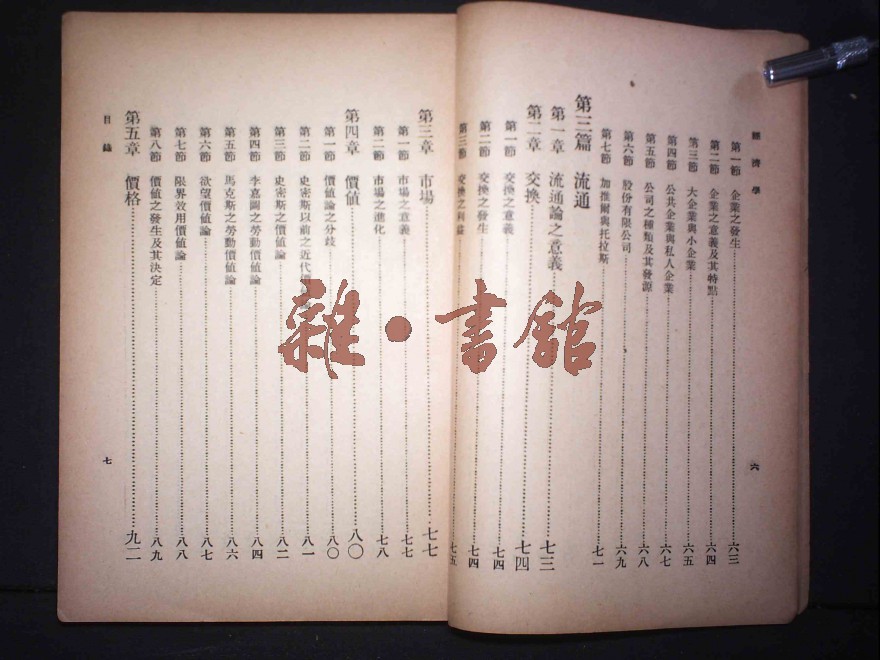 經濟學
第一節 企業之發生 六三
第二節 企業之意義及其特點 六四
第三節 大企業與小企業 六五
第四節 公共企業與私人企業 六七
第五節 公司之種類及其發源 六八
第六節 股份有限公司 六九
第七節 加推爾與托拉斯 七一
第三篇 流通
第一章 流通論之意義 七三
第二章 交換 七四
第一節 交換之意義 七四
第二節 交換之發生 七四
第三節 交換之利益 七五
六
第三章 市場 七七
第一節 市場之意義 七七
第二節 市場之進化 七八
第四章 價値 八〇
第一節 價値論之分歧 八〇
第二節 史密斯以前之近代價 八一
第三節 史密斯之價値論 八二
第四節 李嘉圖之勞動價値論 八四
第五節 馬克斯之勞動價値論 八六
第六節 欲望價値論 八七
第七節 限界效用價値論 八八
第八節 價値之發生及其決定 八九
第五章 價格 九二
目錄
七
雜·書館